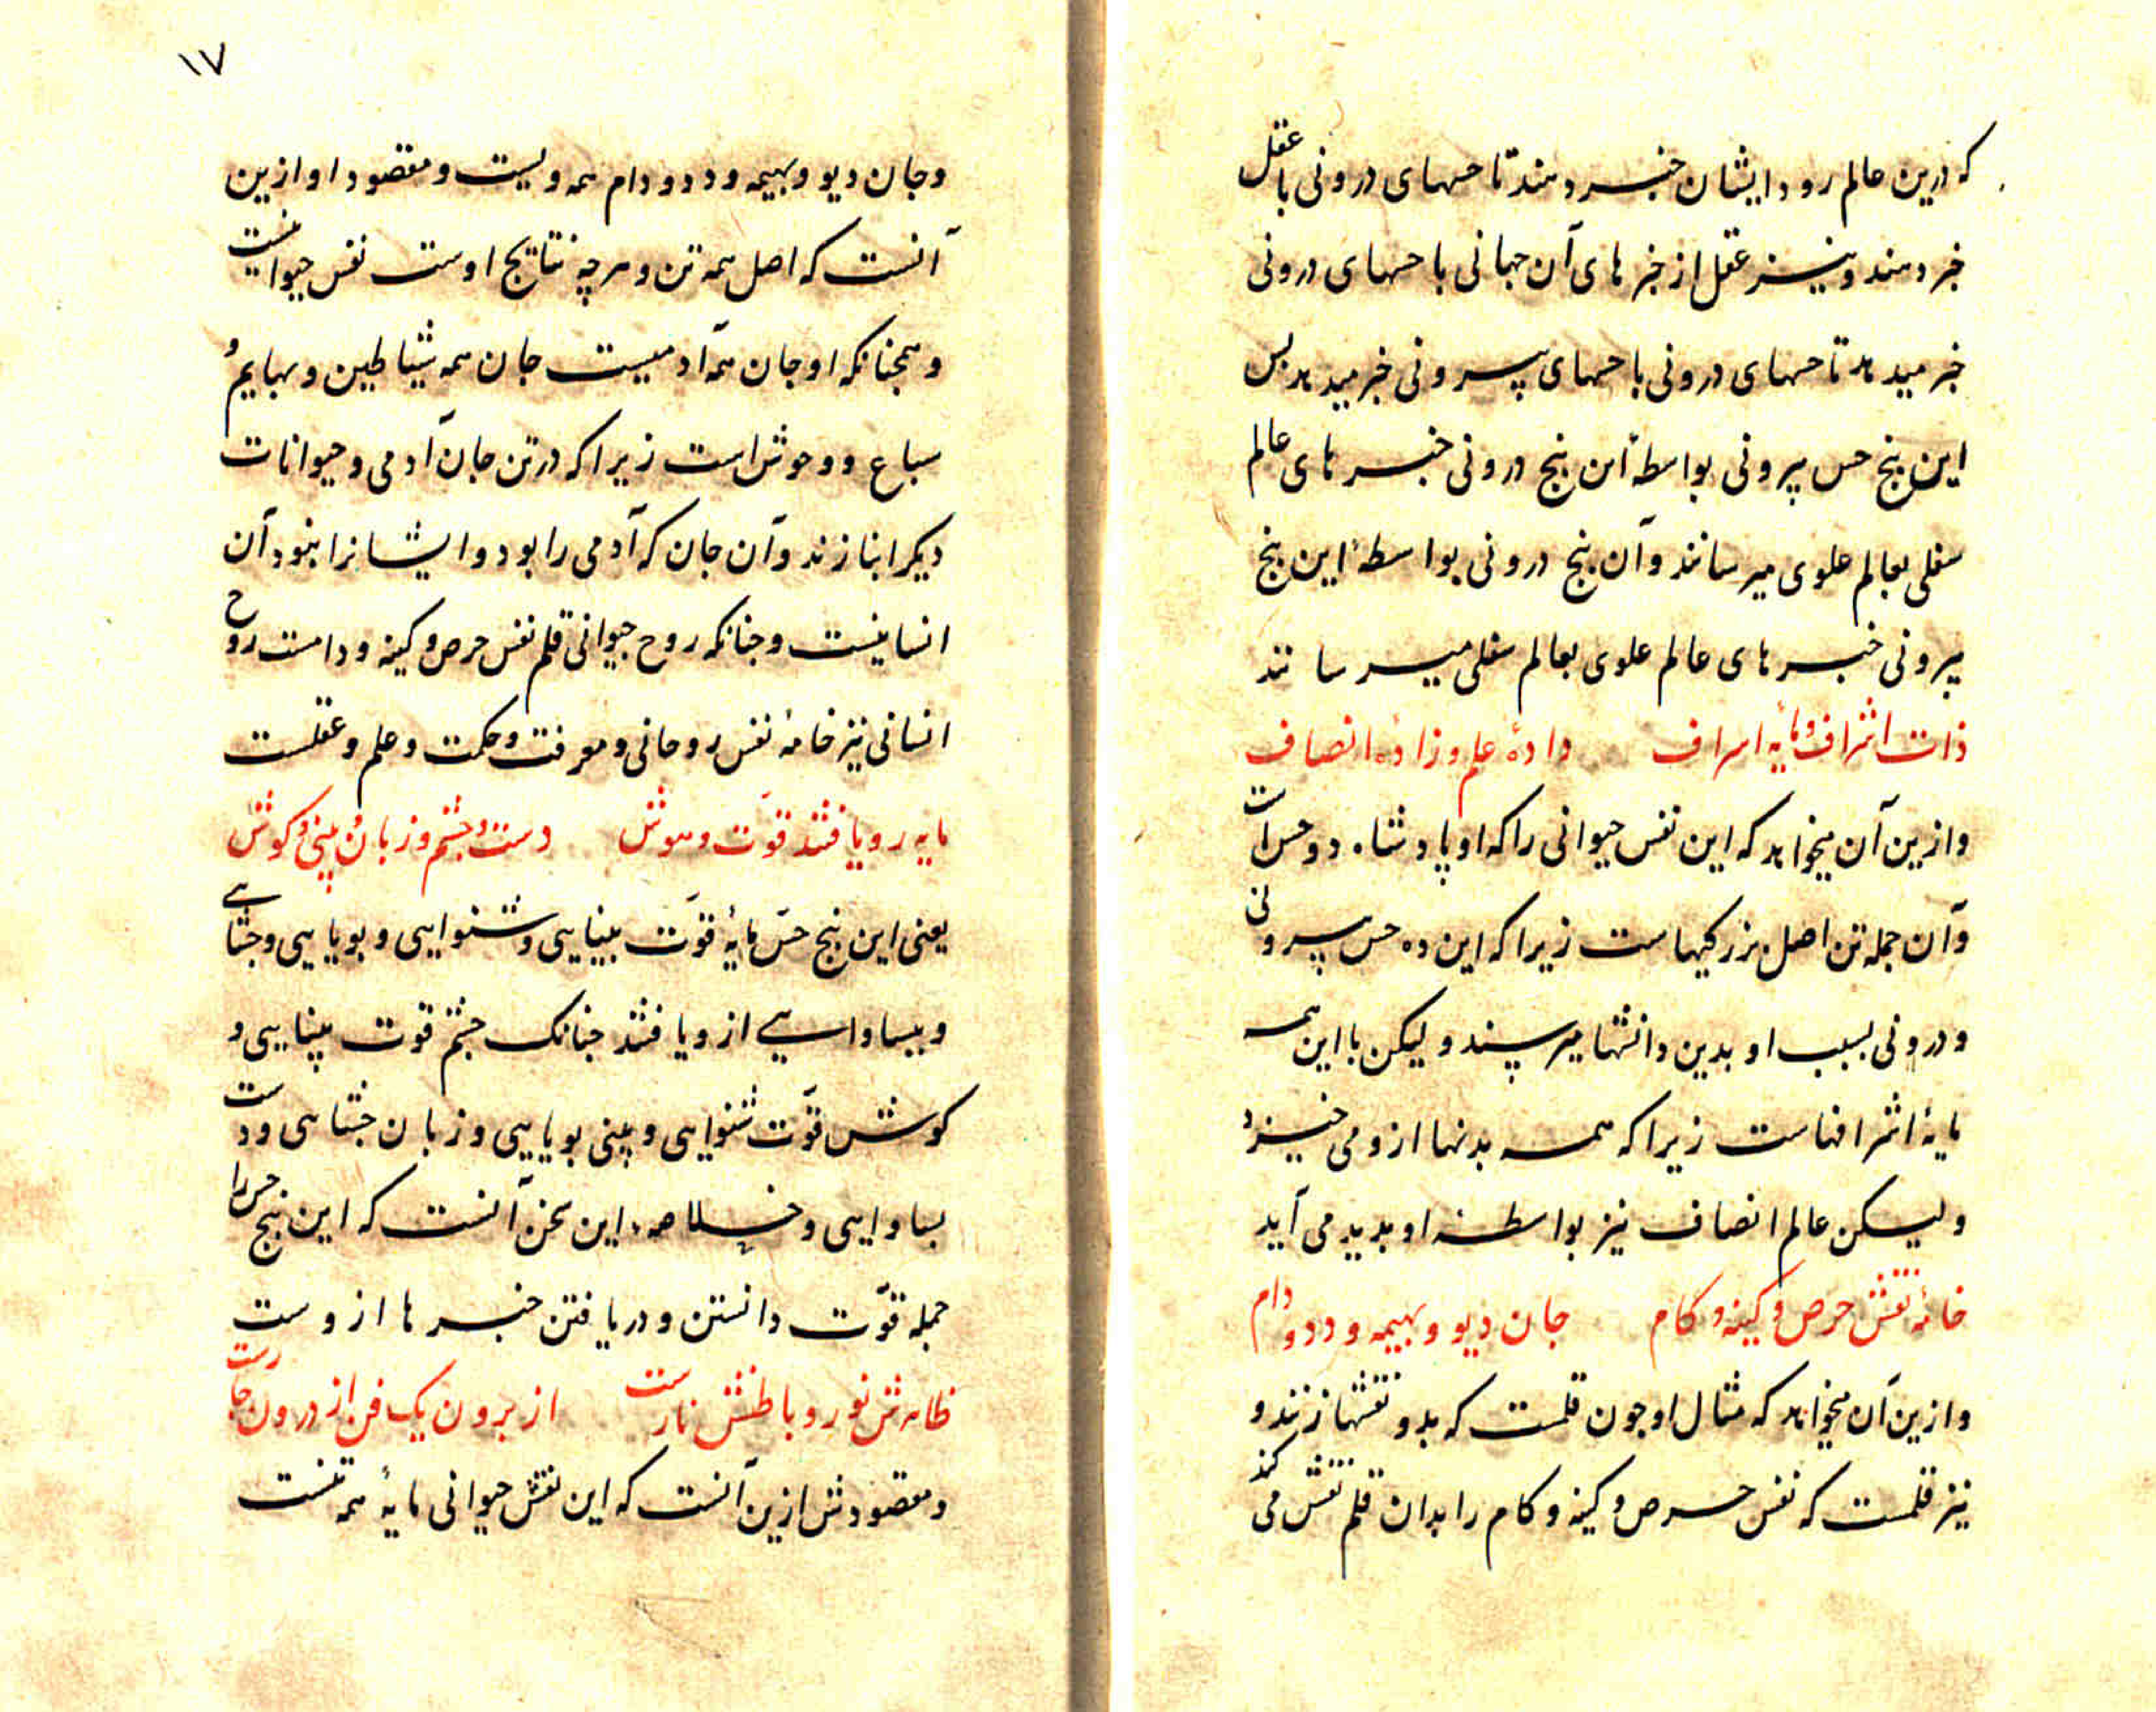 که درین عالم رود ایشان خبر دهند تا حسهای درونی با عقل
خبر دهند و نیز عقل از خبرهای آن جهانی با حسهای درونی
خبر میدهد تا حسهای درونی با حسهای بیرونی خبر میدهد بس
این بنج حس بیرونی بواسطهٔ آن بنج درونی خبرهای عالم
سفلی بعالم علوی میرسانند و آن بنج درونی بواسطهٔ این بنج
بیرونی خبرهای عالم علوی بعالم سفلی میرسانند
ذات اشراف و مایهٔ اسراف دادهٔ علم و زادهٔ انصاف
و ازین آن میخواهد که این نفس حیوانی را که او پادشاه دو حس است
و آن جمله تن اصل بزرکیهاست زیرا که این ده حس بیرونی
و درونی بسبب او بدین دانشها میرسند و لیکن با این همه
مایهٔ اشرافهاست زیرا که همه بدنها ازو می خیزد
ولیکن عالم انصاف نیز بواسطهٔ او بدید می آید
خامهٔ نقش حرص و کینه و کام جان دیو و بهیمه و دد و دام
و ازین آن میخواهد که مثال او جون قلمست که بدو نقشها زنند و
نیز قلمست که نفس حرص و کینه و کام را بدان قلم نقش می کند
۱۷
و جان دیو و بهیمه و دد و دام همه ویست و مقصود او ازین
آنست که اصل همه تن و هرچه نتایج اوست نفس حیوانیست
و همجنانکه او جان همه آدمیست جان همه شیاطین و بهایم و
سباع و وحوش است زیرا که در تن جان آدمی و حیوانات
دیکر انبازند و آن جان که آدمی را بود و ایشانرا نبود آن
انسانیست و جنانکه روح حیوانی قلم نفس حرص و کینه و دامست روح
انسانی نیز خامهٔ نفس روحانی و معرفت و حکمت و علم و عقلست
مایه رو یافتند قوّت و هوش دست و جشم و زبان و بینی و کوش
یعنی این بنج حس مایهٔ قوّت بینایی و شنوایی و بویایی و جشایی
و ببساوایی ازو یافتند جنانک جشم قوت بینایی و
کوش قوّت شنوایی و بینی بویایی و زبان جشایی و دست
بساوایی و خلاصهٔ این سخن آنست که این بنج حس را
جمله قوّت دانستن و دریافتن خبرها ازوست
ظاهرش نور و باطنش نارست از برون یک فن از درون جارست
و مقصودش ازین آنست که این نفس حیوانی مایهٔ همه تنست